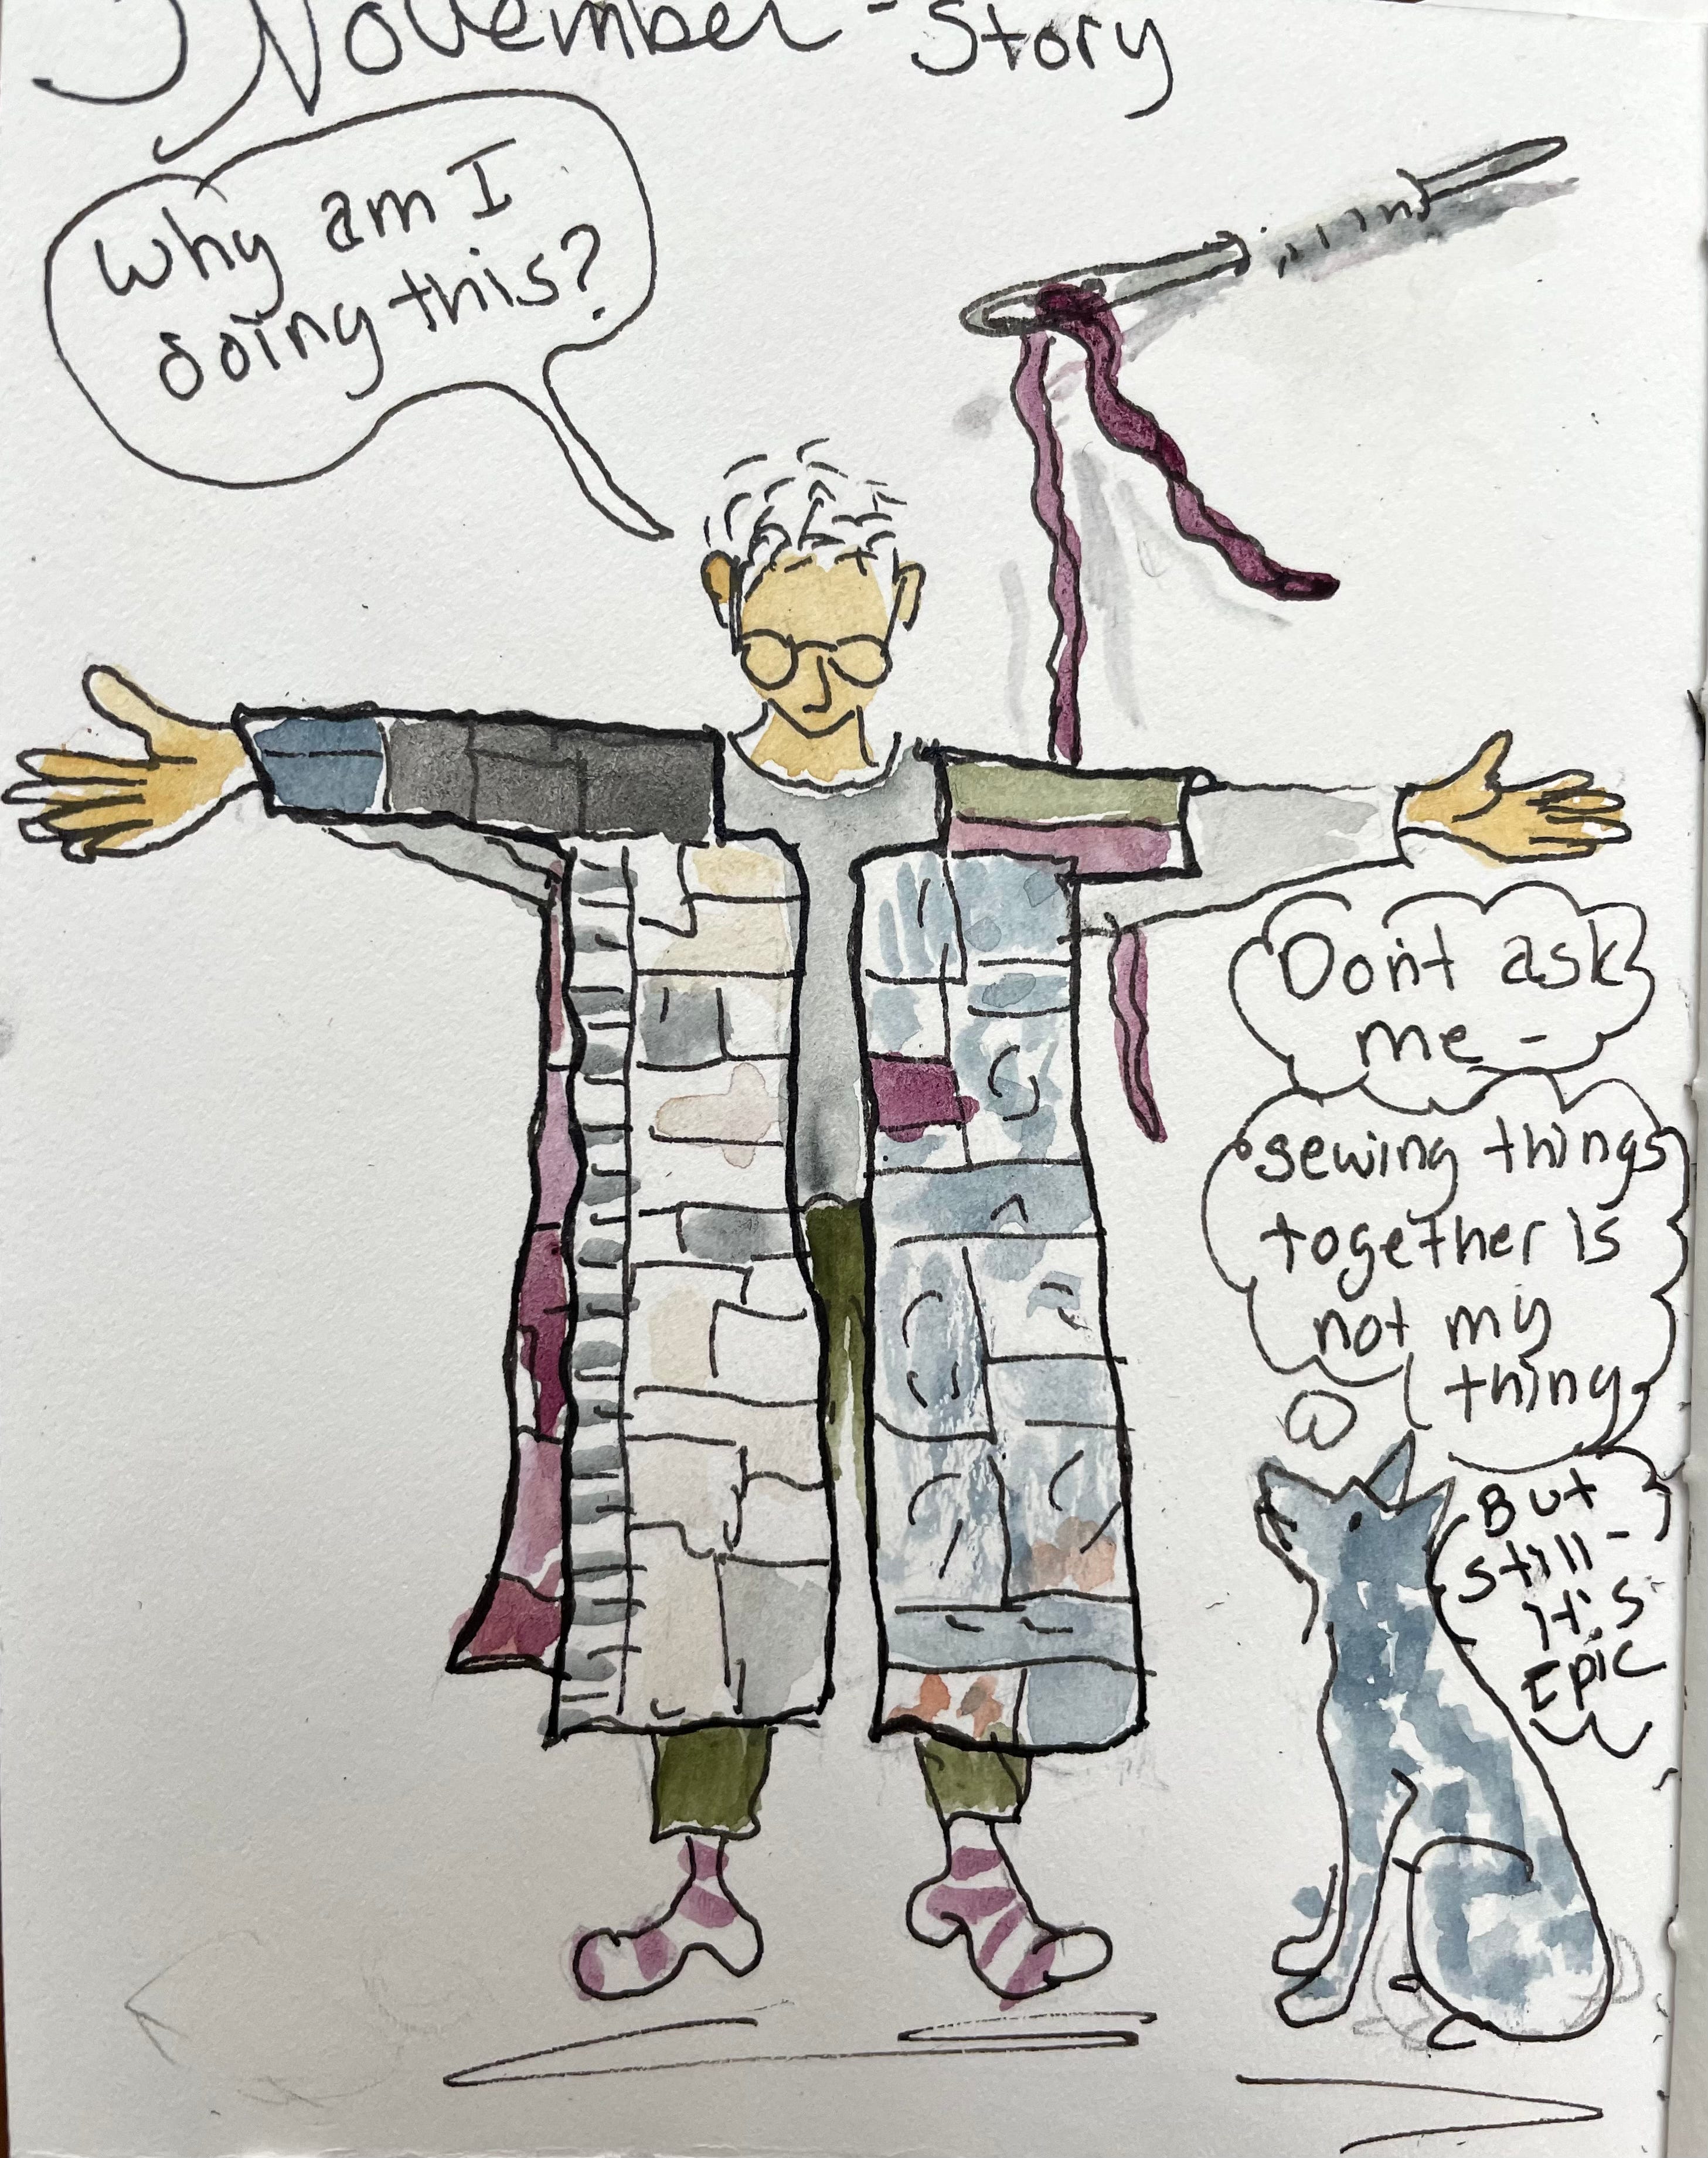 November - Story
Why am I
doing this?
Don't ask
me -
sewing things
together is
not my
thing
But
still -
it's
Epic